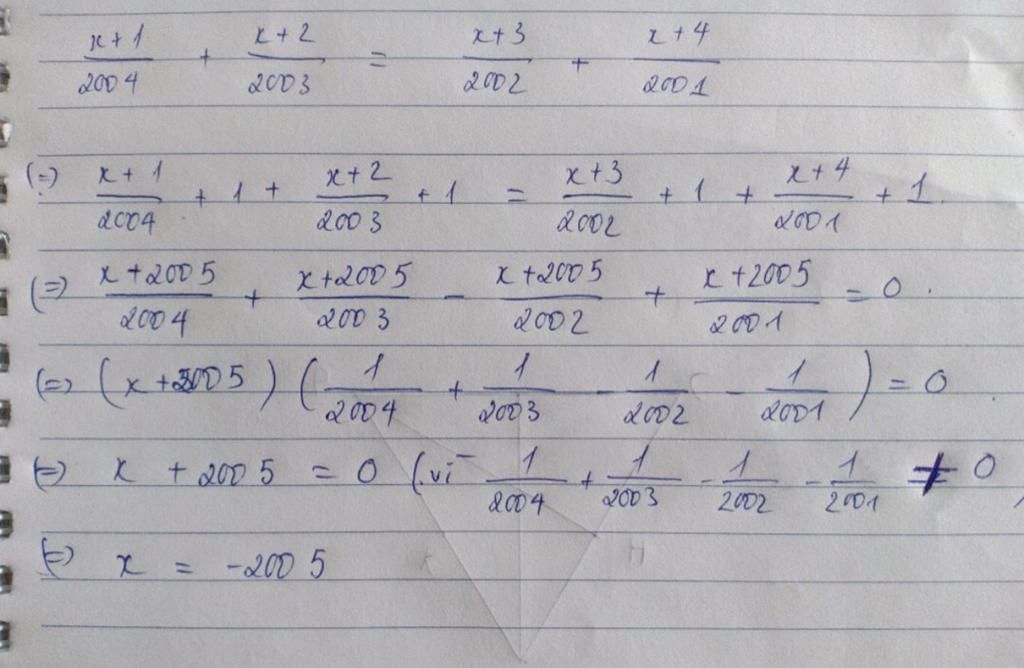 x+1/2004 + x+2/2003 = x+3/2002 + x+4/2001
(=) x+1/2004 + 1 + x+2/2003 + 1 = x+3/2002 + 1 + x+4/2001 + 1.
(=) x+2005/2004 + x+2005/2003 - x+2005/2002 + x+2005/2001 = 0.
(=) (x+2005) (1/2004 + 1/2003 - 1/2002 - 1/2001) = 0
(=) x + 2005 = 0 (vì 1/2004 + 1/2003 - 1/2002 - 1/2001 ≠ 0)
(=) x = -2005
H